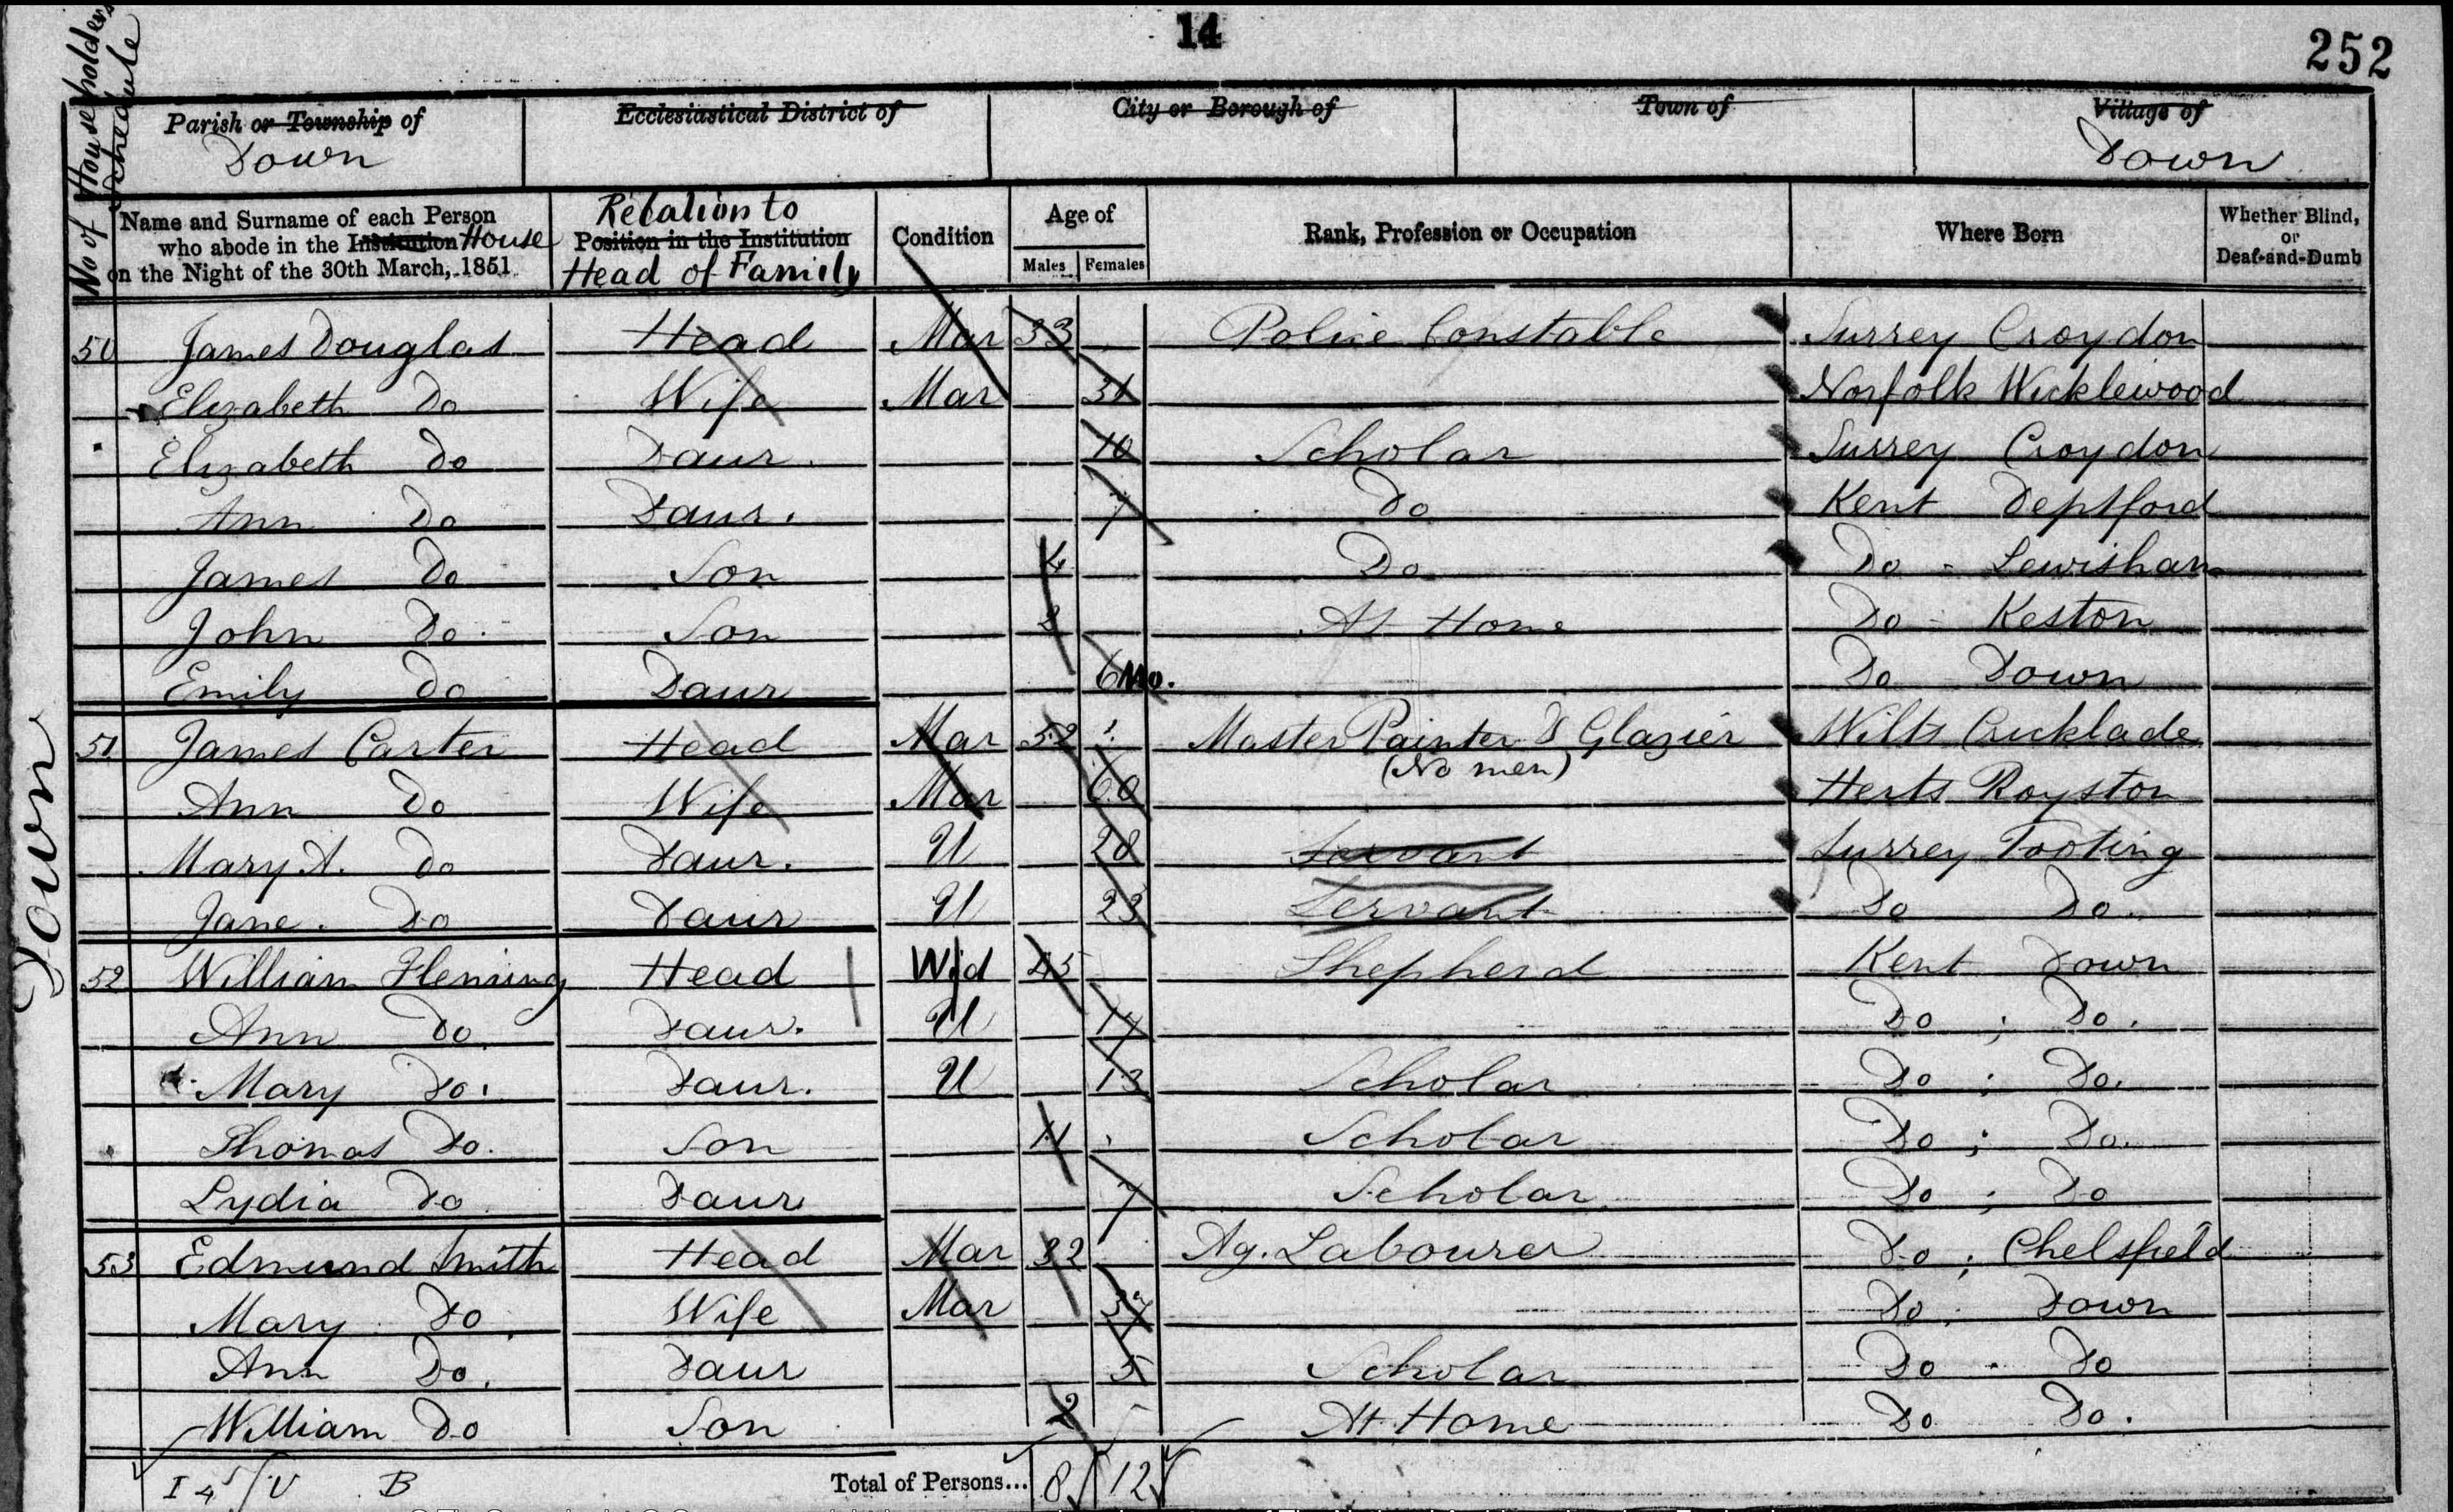 14
252
No of Householders Schedule
Parish or Township of Ecclesiastical District of City or Borough of Town of Village of
Down Down
Name and Surname of each Person who abode in the Institution House on the Night of the 30th March, 1851
Relation to Position in the Institution Head of Family
Condition
Age of
Males Females
Rank, Profession or Occupation
Where Born
Whether Blind, or Deaf-and-Dumb
50 James Douglas Head Mar 33 Police Constable Surrey Croydon
Elizabeth Do Wife Mar 31 Norfolk Wicklewood
Elizabeth Do Daur. 10 Scholar Surrey Croydon
Ann Do Daur. 7 Do Kent Deptford
James Do Son 4 Do Do - Lewisham
John Do. Son 2 At Home Do - Keston
Emily Do Daur 6 Mo. Do Down
51. James Carter Head Mar 52 Master Painter & Glazier Wilts Cricklade
(No men)
Ann Do Wife Mar 60 Herts Royston
Mary A. Do Daur. U 28 Servant Surrey Tooting
Jane. Do Daur U 23 Servant Do Do.
52 William Fleming Head Wid 45 Shepherd Kent Down
Ann Do. Daur. U 17 Do ; Do.
Mary Do. Daur. U 13 Scholar Do ; Do.
Thomas Do. Son 11 Scholar Do ; Do.
Lydia Do Daur 7 Scholar Do ; Do
53 Edmund Smith Head Mar 32 Ag. Labourer Do ; Chelsfield
Mary Do. Wife Mar 37 Do. Down
Ann Do. Daur 5 Scholar Do Do
William Do Son 2 At Home Do Do.
Total of Persons... 8 12
Down
B